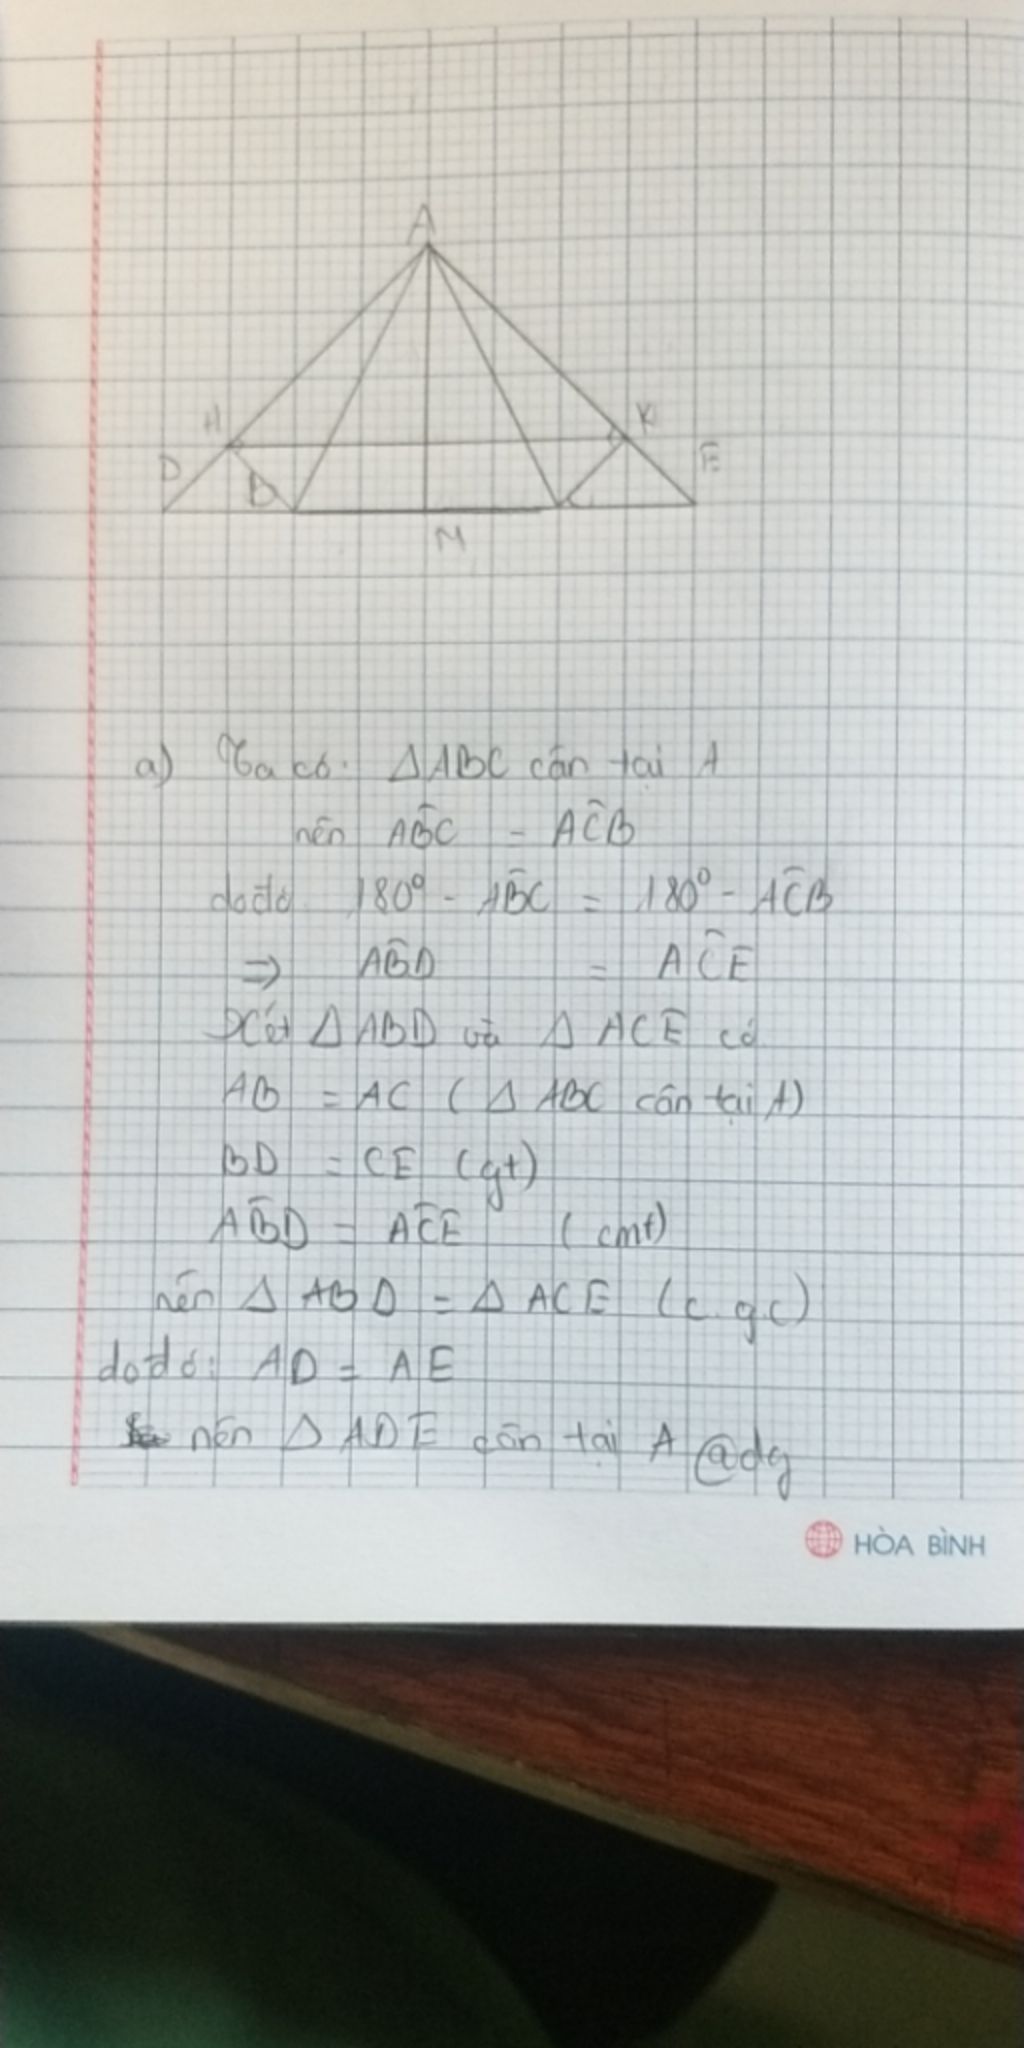 A
H
K
D
E
B
C
M
a) Ta có: ΔABC cân tại A
nên AB̂C = AĈB
do đó 180° - AB̂C = 180° - AĈB
⇒ AB̂D = AĈE
Xét ΔABD và Δ ACE có
AB = AC (Δ ABC cân tại A)
BD = CE (gt)
AB̂D = AĈE (cmt)
nên Δ ABD = Δ ACE (c.g.c)
do đó: AD = AE
nên Δ ADE cân tại A
HÒA BÌNH